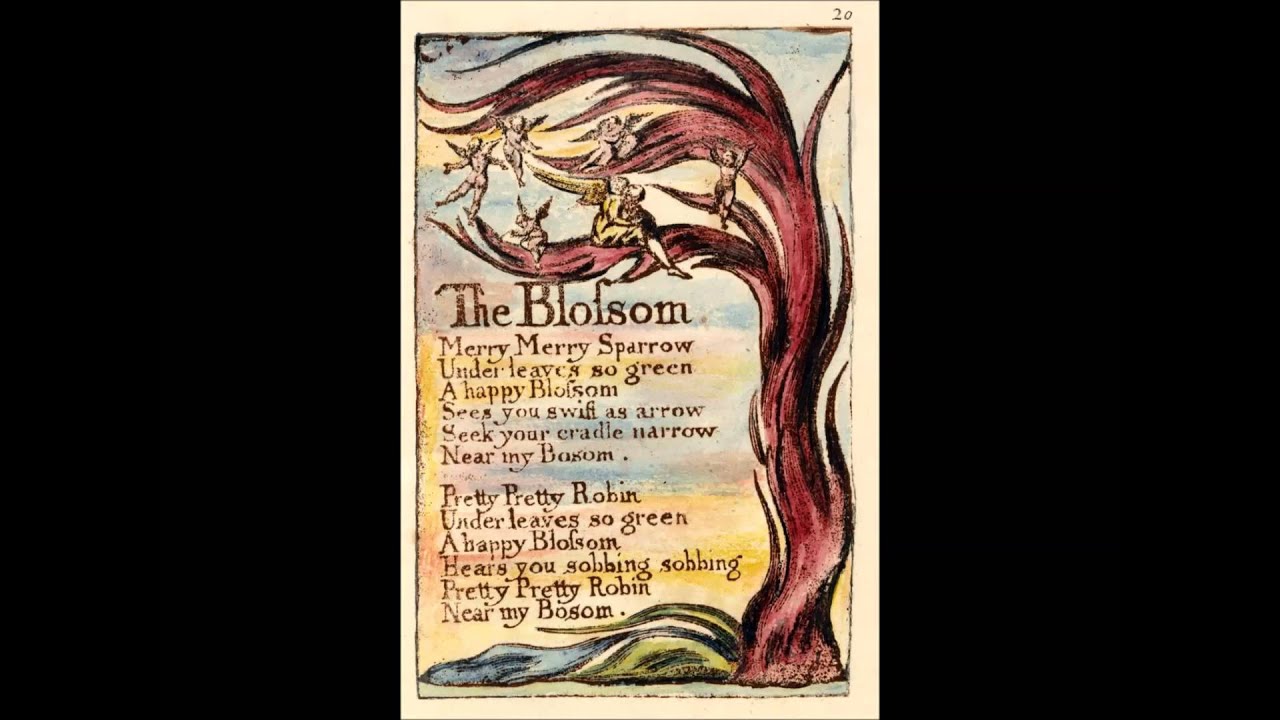 20
The Bloſsom.
Merry Merry Sparrow
Under leaves so green
A happy Bloſsom
Sees you swift as arrow
Seek your cradle narrow
Near my Bosom.
Pretty Pretty Robin
Under leaves so green
A happy Bloſsom
Hears you sobbing sobbing
Pretty Pretty Robin
Near my Bosom.